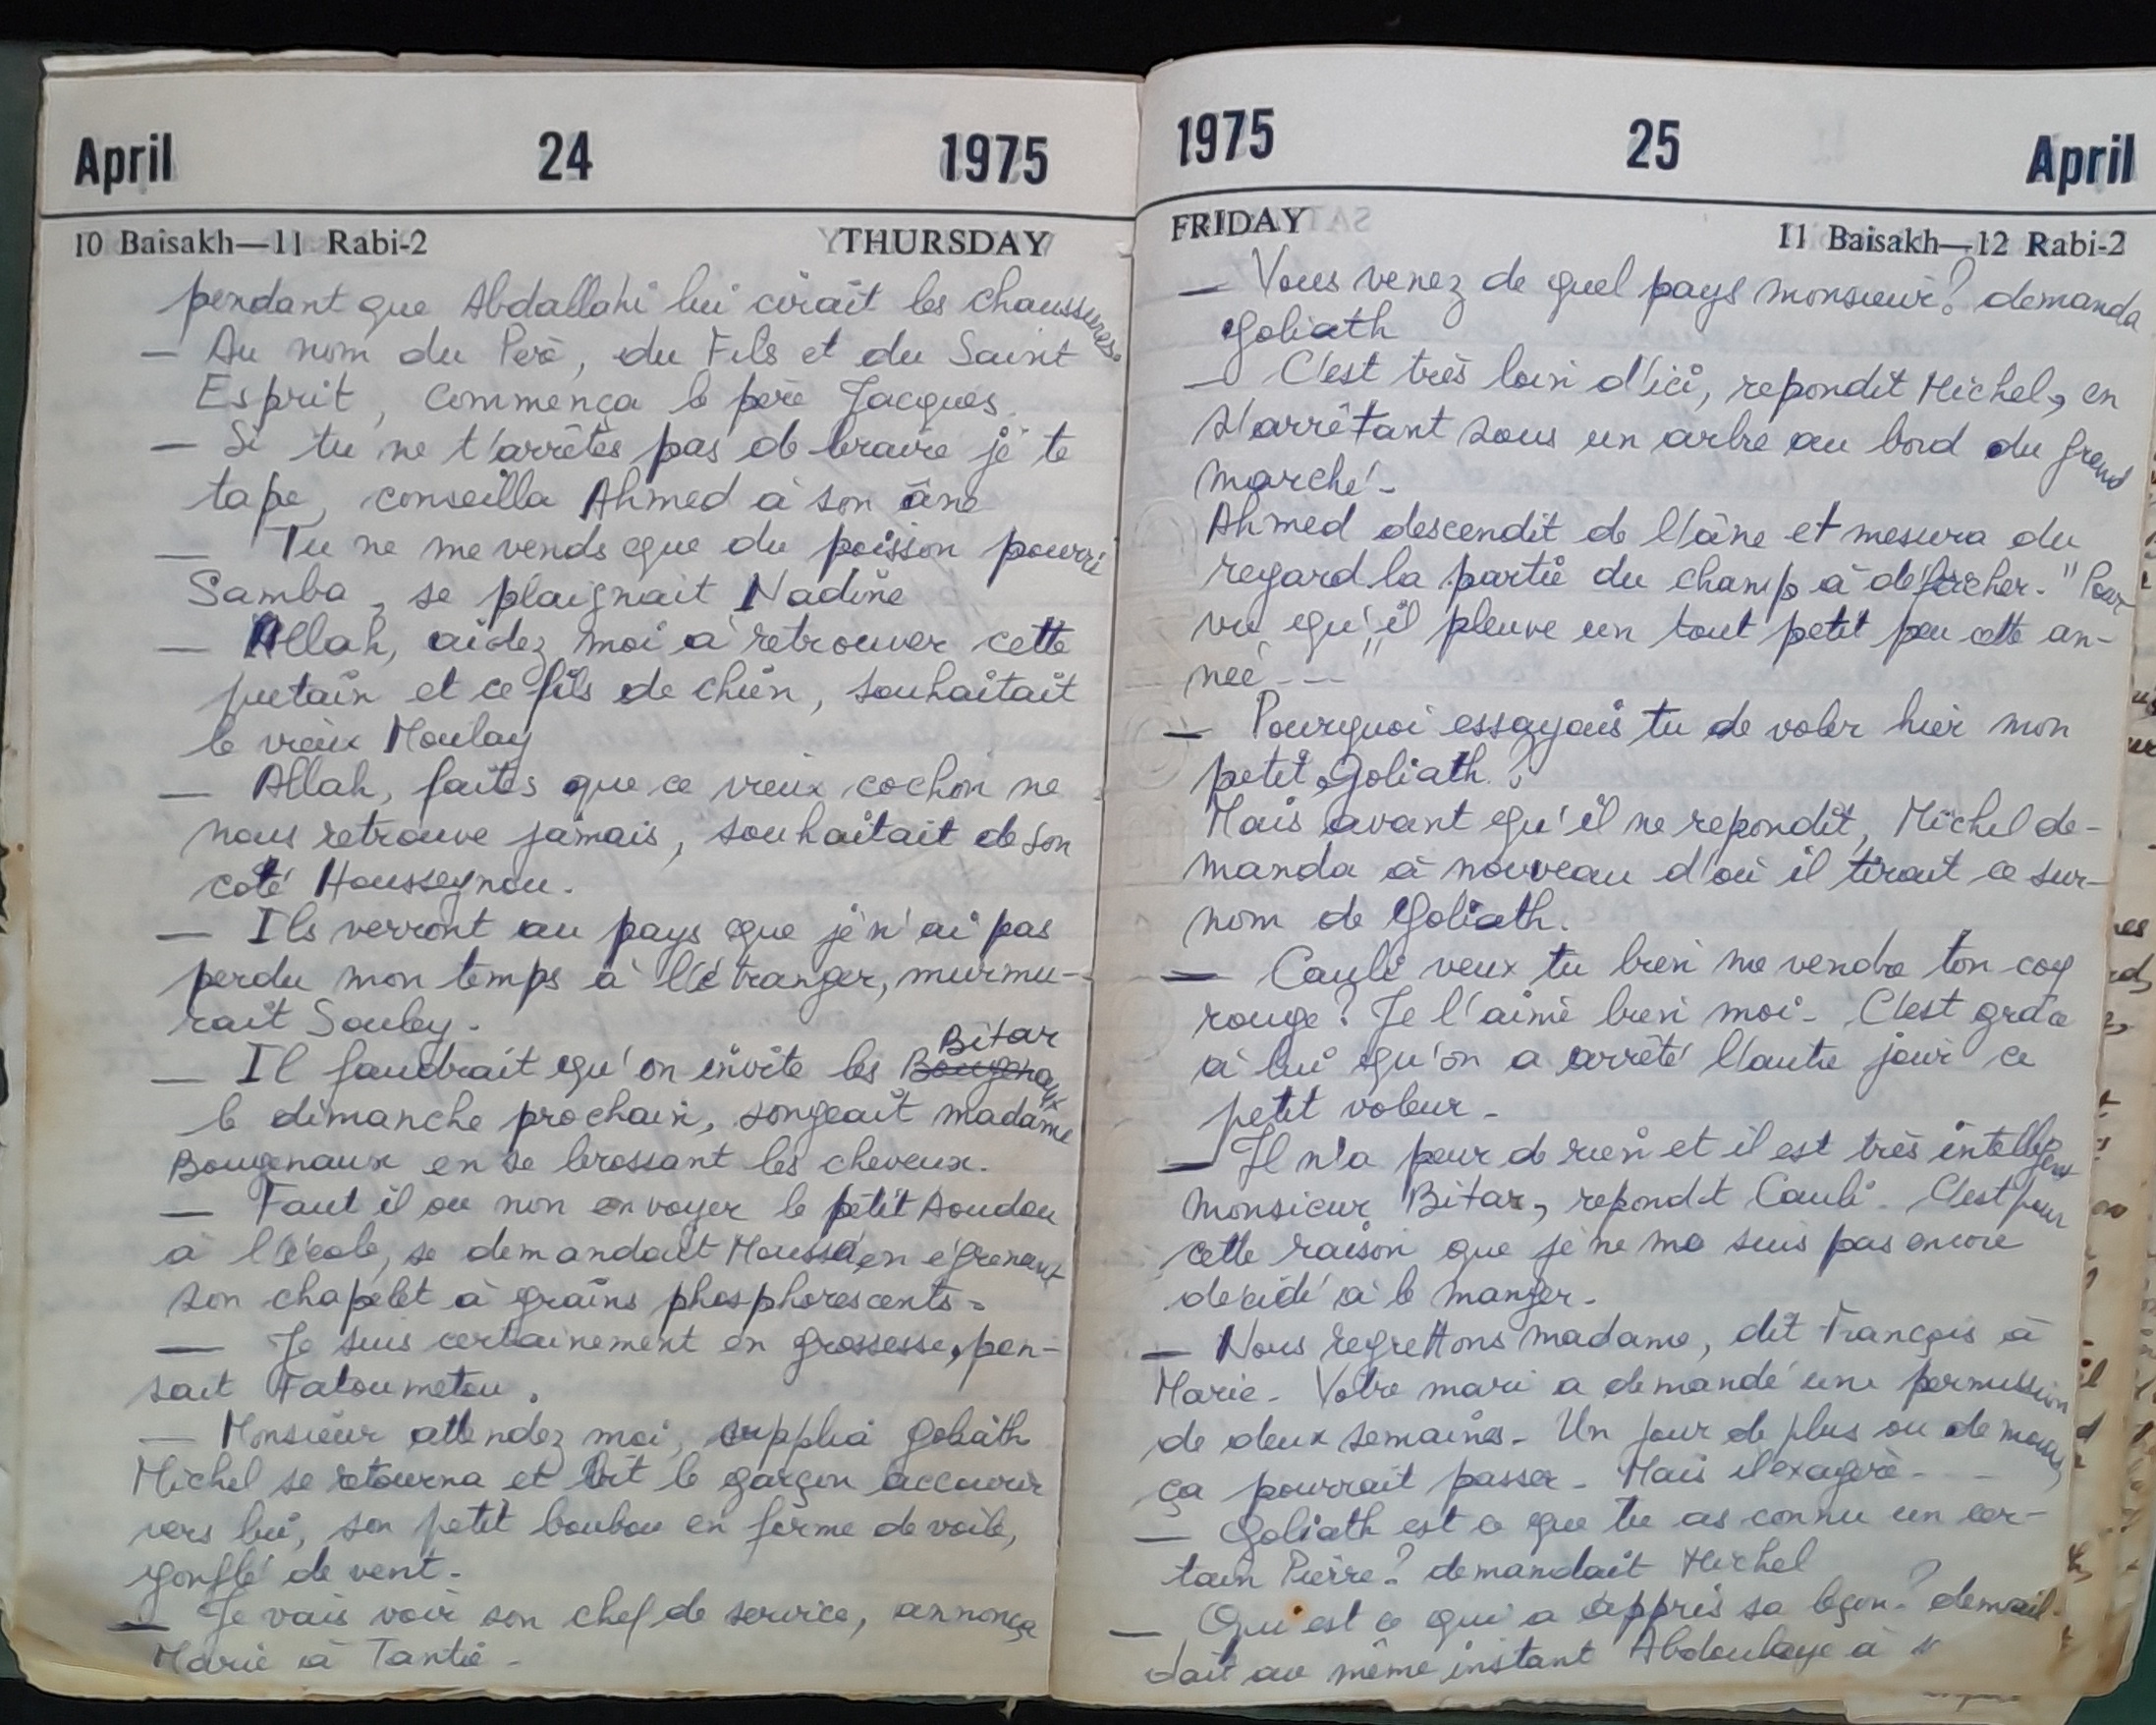 April 24 1975
10 Baisakh—11 Rabi-2 THURSDAY
pendant que Abdallahi lui cirait les chaussures.
— Au nom du Père, du Fils et du Saint
Esprit, commença le père Jacques.
— Si tu ne t'arrêtes pas de braire je te
tape, conseilla Ahmed à son âne
— Tu ne me vends que du poisson pourri
Samba, se plaignait Nadine
— Allah, aidez moi à retrouver cette
putain et ce fils de chien, souhaitait
le vieux Moulay
— Allah, faites que ce vieux cochon ne
nous retrouve jamais, souhaitait de son
coté Housseynou.
— Ils verront au pays que je n'ai pas
perdu mon temps à l'étranger, murmu-
rait Souley.
Bitar
— Il faudrait qu'on invite les Bougenaux
le dimanche prochain, songeait madame
Bougenaux en se brossant les cheveux.
— Faut il ou non envoyer le petit Aoudou
à l'école, se demandait Moussa en égrenant
son chapelet à grains phosphorescents.
— Je suis certainement en grossesse, pen-
sait Fatoumetou.
— Monsieur attendez moi, supplia Goliath
Michel se retourna et vit le garçon accourir
vers lui, son petit boubou en forme de voile,
gonflé de vent.
— Je vais voir son chef de service, annonça
Marie à Tantie.
1975 25 April
FRIDAY 11 Baisakh—12 Rabi-2
— Vous venez de quel pays monsieur? demanda
Goliath
— C'est très loin d'ici, repondit Michel, en
s'arrêtant sous un arbre au bord du grand
marché.
Ahmed descendit de l'âne et mesura du
regard la partie du champ à défricher. "Pour
vu qu'il pleuve un tout petit peu cette an-
née ---"
— Pourquoi essayais tu de voler hier mon
petit Goliath?
Mais avant qu'il ne repondit, Michel de-
manda à nouveau d'où il tirait ce sur-
nom de Goliath.
— Caulé veux tu bien me vendre ton coq
rouge? Je l'aime bien moi. C'est grâce
à lui qu'on a arrêté l'autre jour ce
petit voleur.
— Il n'a peur de rien et il est très intelligent
monsieur Bitar, repondit Caulé. C'est pour
cette raison que je ne me suis pas encore
décidé à le manger.
— Nous regrettons madame, dit François à
Marie. Votre mari a demandé une permission
de deux semaines. Un jour de plus ou de moins
ça pourrait passer. Mais il exagère. --
— Goliath est ce que tu as connu un cer-
tain Pierre? demandait Michel
— Qu'est ce qui a appris sa leçon? deman-
dait au même instant Abdoulaye à